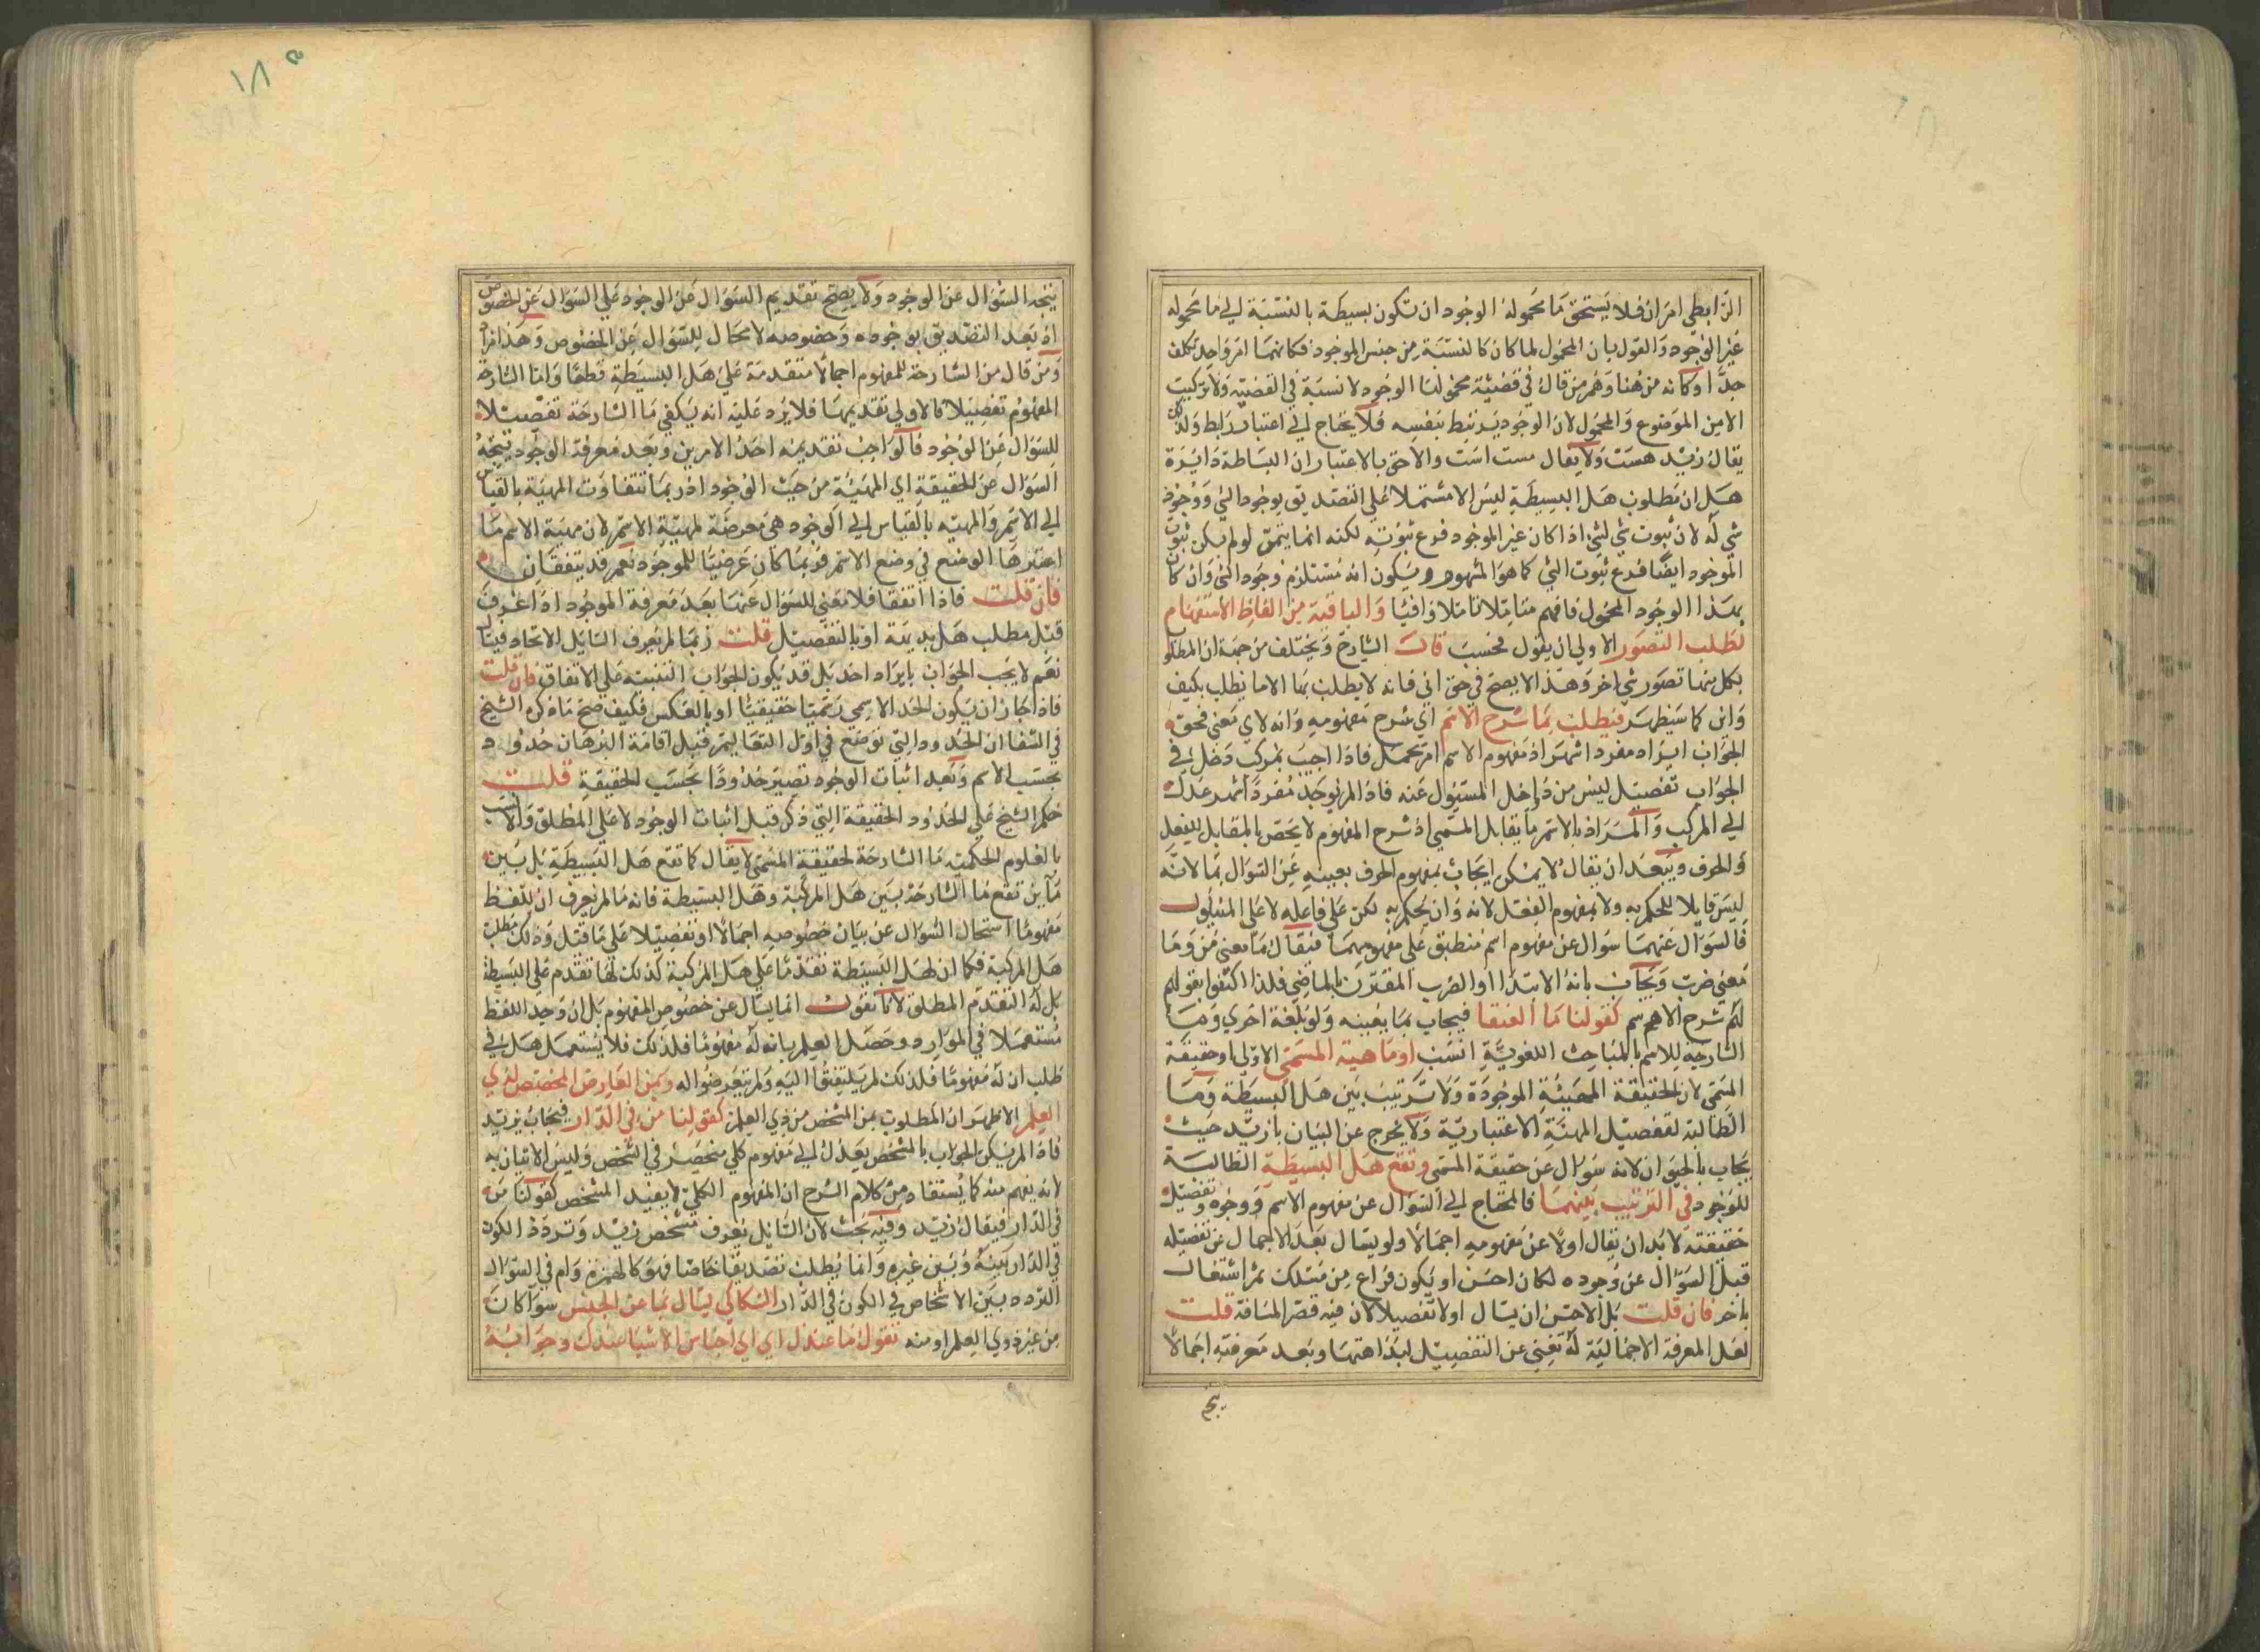 الرابطي امران فلا يستحق ما محموله الوجود ان تكون بسيطة بالنسبة الي ما محموله
غير الوجود والقول بان المحمول لما كان كالنسبة من جنس الموجود فكانهما امر واحد تكلف
جدا وكانه من هنا وهم من قال في قضية محمولها الوجود لا نسبة في القضية ولا تركيب
الا من الموضوع والمحمول لان الوجود يرتبط بنفسه فلا يحتاج الي اعتبار رابط ولذلك
يقال زيد هست ولا يقال هست است والاحق بالاعتبار ان البساطة دايرة
هل ان مطلوب هل البسيطة ليس الا مشتملا علي التصديق بوجود الشي ووجود
شي له لان ثبوت شي لشي اذا كان غير الموجود فرع ثبوته لكنه انما يتم لو لم يكن ثبوت
الموجود ايضا فرع ثبوت الشي كما هو المشهور ويكون انه مستلزم وجود الشي وان كان
بهذا الوجود المحمول فافهم متاملا تاملا وافيا والباقية من الفاظ الاستفهام
لطلب التصور الاولي ان يقول فحسب قال الشارح ويختلف من جهة ان المطلوب
بكل منها تصور شي اخر وهذا لا يصح في حق اني فانه لا يطلب بها الا ما يطلب بكيف
واين كما سيظهر فيطلب بما شرح الاسم اي شرح مفهومه وانه لاي معنى فحق
الجواب ايراد مفرد اشهر اذ مفهوم الاسم امر مجمل فاذا اجيب بمركب دخل في
الجواب تفصيل ليس من داخل المسئول عنه فاذا لم يوجد مفردا اشهر عدل
الي المركب والمراد بالاسم ما يقابل المسمي اذ شرح المفهوم لا يختص بالمقابل للفعل
والحرف ويبعد ان يقال لا يمكن ايجاب بمفهوم الحرف بعينه عن السوال بما لانه
ليس قابلا للحكم به ولا بمفهوم الفعل لانه وان يحكم به لكن علي فاعله لا علي المسئول
فالسوال عنهما سوال عن مفهوم اسم منطبق علي مفهومهما فيقال ما معني من وما
معني ضرب ويجاب بانه الابتدا او الضرب المقترن بالماضي فلذا اكتفوا بقولهم
لشرح الاسم كقولنا ما العنقا فيجاب بما يعينه ولو بلغة اخري وما
الشارحة للاسم بالمباحث اللغوية انسب او ماهية المسمي الاولي او حقيقة
المسمي لان الحقيقة المهيئة الموجودة ولا ترتيب بين هل البسيطة وما
الطالبة لتفصيل المهية الاعتبارية ولا يخرج عن البيان بازيد حيث
يجاب بالحيوان لانه سوال عن حقيقة المسمي وتقع هل البسيطة الطالبة
للوجود في الترتيب بينهما فالمحتاج الي السوال عن مفهوم الاسم ووجوه وتفصيل
حقيقته لا بد ان يقال اولا عن مفهومه اجمالا ولو يسال بعد الاجمال عن تفصيله
قبل السوال عن وجوده لكان احسن او يكون فراع من مسلك ثم اشتغال
باخر فان قلت بل الاحسن ان يسال اولا تفصيلا لان فيه قصر المسافة قلت
لعل المعرفة الاجمالية له تغني عن التفصيل لبداهتها وبعد معرفته اجمالا
١٨٥
يتجه السوال عن الوجود ولا يصح تقديم السوال عن الوجود علي السوال عن الخصوص
اذ بعد التصديق بوجوده وخصوصه لا مجال للسوال عن الخصوص وهذا مراد
ومن قال من الشارحة للمفهوم اجمالا متقدمة علي هل البسيطة قطعا واما الشارحة
المفهوم تفصيلا فالاولي تقديمها فلا يرد عليه انه يكفي ما الشارحة تفصيلا
للسوال عن الوجود فالواجب تقديمه احد الامرين وبعد معرفة الوجود يتجه
السوال عن الحقيقة اي المهية من حيث الوجود اذ ربما تتفاوت المهية بالقياس
الي الاسم والمهية بالقياس الي الوجود هي معرضة لمهية الاسم لان مهية الاسم ما
اعتبرها الوضع في وضع الاسم فربما كان عرضيا للموجود نعم قد يتفقان
فان قلت فاذا اتفقا فلا معني للسوال عنها بعد معرفة الموجود اذا عرف
قبل مطلب هل بديهة او بالتفصيل قلت ربما لم يعرف السايل الاتحاد فيسال
نعم لا يجب الجواب بايراد احد بل قد يكون الجواب التنبيه علي الاتفاق فان قلت
فاذا جاز ان يكون الحد الاسمي رسميا حقيقيا او بالعكس فكيف صح ما ذكره الشيخ
في الشفا ان الحدود التي توضع في اول التعاليم قبل اقامة البرهان حدود
بحسب الاسم وبعد اثبات الوجود تصير حدودا بحسب الحقيقة قلت
حكم الشيخ علي الحدود الحقيقة التي ذكر قبل اثبات الوجود لا علي المطلق والانسب
بالعلوم الحكمية ما الشارحة لحقيقة المسمي لا يقال كما تقع هل البسيطة بل بين
ماين تقع ما الشارحة بين هل المركبة وهل البسيطة فانه ما لم يعرف ان للفظ
مفهوما استحال السوال عن بيان خصوصه اجمالا او تفصيلا علي ما قيل وذلك مطلب
هل المركبة فكما ان لهل البسيطة تقدما علي هل المركبة كذلك لها تقدم علي البسيطة
بل له التقدم المطلق لانا نقول انما يسال عن خصوص المفهوم بل ان وجد اللفظ
مستعملا في الموارد وحصل العلم بانه له مفهوما فلذلك فلا يستعمل هل في
طلب ان له مفهوما فلذلك لم يلتفتوا اليه ولم يتعرضوا له وبمن العارض المختص لذي
العلم الاظهر ان المطلوب بمن المشخص من ذوي العلم كقولنا من في الدار فيجاب بزيد
فاذا لم يكن الجواب بالمشخص يعدل الي مفهوم كلي منحصر في الشخص وليس الاتيان به
لانه يفهم منه كما يستفاد من كلام الشرح ان المفهوم الكلي لا يفيد المشخص كقولنا من
في الدار فيقال زيد وفيه بحث لان السايل يعرف تشخص زيد وتردد الكون
في الدار بينه وبين غيره وانما يطلب تصديقا خاصا فهو كالهمزة وام في السوال
التردد بين الاشخاص في الكون في الدار السكاكي يسال بما عن الجنس سوا كان
من غير ذوي العلم او منه تقول ما عندك اي اي اجناس الاشيا عندك وجوابه